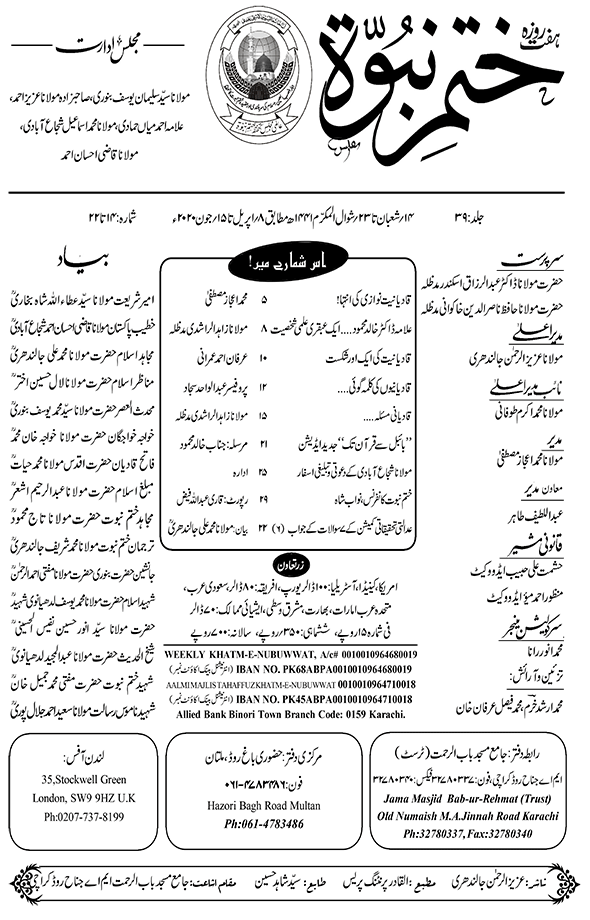 ہفت روزہ
ختم نبوۃ
مجلس ادارت
مولانا سید سلیمان یوسف بنوری، صاحبزادہ مولانا عزیز احمد،
علامہ احمد میاں حمادی، مولانا محمد اسماعیل شجاع آبادی،
مولانا قاضی احسان احمد
جلد: ۳۹
۱۴؍شعبان تا ۲۳؍شوال المکرم ۱۴۴۱ھ مطابق ۸؍اپریل تا ۱۵؍جون ۲۰۲۰ء
شمارہ: ۱۴ تا ۲۲
سرپرست
حضرت مولانا ڈاکٹر عبدالرزاق اسکندر مدظلہ
حضرت مولانا حافظ ناصر الدین خاکوانی مدظلہ
مدیر اعلیٰ
مولانا عزیز الرحمٰن جالندھری
نائب مدیر اعلیٰ
مولانا محمد اکرم طوفانی
مدیر
مولانا محمد اعجاز مصطفیٰ
معاون مدیر
عبداللطیف طاہر
قانونی مشیر
حشمت علی حبیب ایڈووکیٹ
منظور احمد میؤ ایڈووکیٹ
سرکولیشن منیجر
محمد انور رانا
تزئین و آرائش:
محمد ارشد خرم، محمد فیصل عرفان خان
اس شمارے میں!
قادیانیت نوازی کی انتہا! ۵ محمد اعجاز مصطفیٰ
علامہ ڈاکٹر خالد محمود.... ایک عبقری علمی شخصیت ۸ مولانا زاہد الراشدی مدظلہ
قادیانیت کی ایک اور شکست ۱۰ عرفان احمد عمرانی
قادیانیوں کی کلمہ گوئی.... ۱۲ پروفیسر عبدالواحد سجاد
قادیانی مسئلہ.... ۱۵ مولانا زاہد الراشدی مدظلہ
”بائبل سے قرآن تک“ جدید ایڈیشن ۲۱ مرسلہ: جناب خالد محمود
مولانا شجاع آبادی کے دعوتی و تبلیغی اسفار ۲۵ ادارہ
ختم نبوت کانفرنس، نواب شاہ ۲۹ رپورٹ: قاری عبداللہ فیض
عدالتی تحقیقاتی کمیشن کے ۷ سوالات کے جواب (۶) ۲۲ بیان: مولانا محمد علی جالندھریؒ
زر تعاون
امریکا، کینیڈا، آسٹریلیا: ۱۰۰ ڈالر یورپ، افریقہ: ۸۰ ڈالر، سعودی عرب،
متحدہ عرب امارات، بھارت، مشرق وسطیٰ، ایشیائی ممالک: ۷۰ ڈالر
فی شمارہ ۱۵ روپے، ششماہی: ۳۵۰ روپے، سالانہ: ۷۰۰ روپے
WEEKLY KHATM-E-NUBUWWAT, A/c# 0010010964680019
IBAN NO. PK68ABPA0010010964680019 (انٹرنیشنل بینک اکاؤنٹ نمبر)
AALMI MAJLIS TAHAFFUZ KHATM-E-NUBUWWAT 0010010964710018
IBAN NO. PK45ABPA0010010964710018 (انٹرنیشنل بینک اکاؤنٹ نمبر)
Allied Bank Binori Town Branch Code: 0159 Karachi.
بیاد
امیر شریعت مولانا سید عطاء اللہ شاہ بخاریؒ
خطیب پاکستان مولانا قاضی احسان احمد شجاع آبادیؒ
مجاہد اسلام حضرت مولانا محمد علی جالندھریؒ
مناظر اسلام حضرت مولانا لال حسین اخترؒ
محدث العصر حضرت مولانا سید محمد یوسف بنوریؒ
خواجہ خواجگان حضرت مولانا خواجہ خان محمدؒ
فاتح قادیان حضرت اقدس مولانا محمد حیاتؒ
مبلغ اسلام حضرت مولانا عبدالرحیم اشعرؒ
مجاہد ختم نبوت حضرت مولانا تاج محمودؒ
ترجمان ختم نبوت حضرت مولانا محمد شریف جالندھریؒ
جانشین حضرت بنوری حضرت مولانا مفتی احمد الرحمٰنؒ
شہید اسلام حضرت مولانا محمد یوسف لدھیانوی شہیدؒ
حضرت مولانا سید انور حسین نفیس الحسینیؒ
شیخ الحدیث حضرت مولانا عبدالمجید لدھیانویؒ
شہید ختم نبوت حضرت مفتی محمد جمیل خانؒ
شہید ناموس رسالت مولانا سعید احمد جلال پوریؒ
رابطہ دفتر: جامع مسجد باب الرحمت (ٹرسٹ)
ایم اے جناح روڈ کراچی، فون: ۳۲۷۸۰۳۳۷ فیکس: ۳۲۷۸۰۳۴۰
Jama Masjid Bab-ur-Rehmat (Trust)
Old Numaish M.A.Jinnah Road Karachi
Ph:32780337, Fax:32780340
مرکزی دفتر: حضوری باغ روڈ، ملتان
فون: ۰۶۱-۴۷۸۳۴۸۶
Hazori Bagh Road Multan
Ph:061-4783486
لندن آفس:
35,Stockwell Green
London, SW9 9HZ U.K
Ph:0207-737-8199
ناشر: عزیز الرحمٰن جالندھری مطبع: القادر پرنٹنگ پریس طابع: سید شاہد حسین مقام اشاعت: جامع مسجد باب الرحمت ایم اے جناح روڈ کراچی